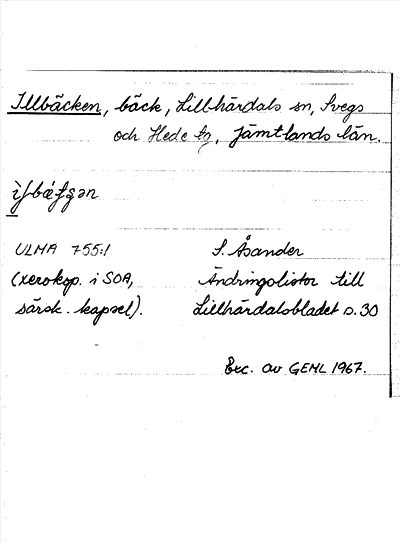 Illbäcken, bäck, Lillhärdals sn, Svegs
och Hede tg, Jämtlands län.
ULMA 755:1
(xerokop. i SOA,
särsk. kapsel).
S. Åsander
Ändringslistor till
Lillhärdalsbladet s. 30
Exc. av GEHL 1967.